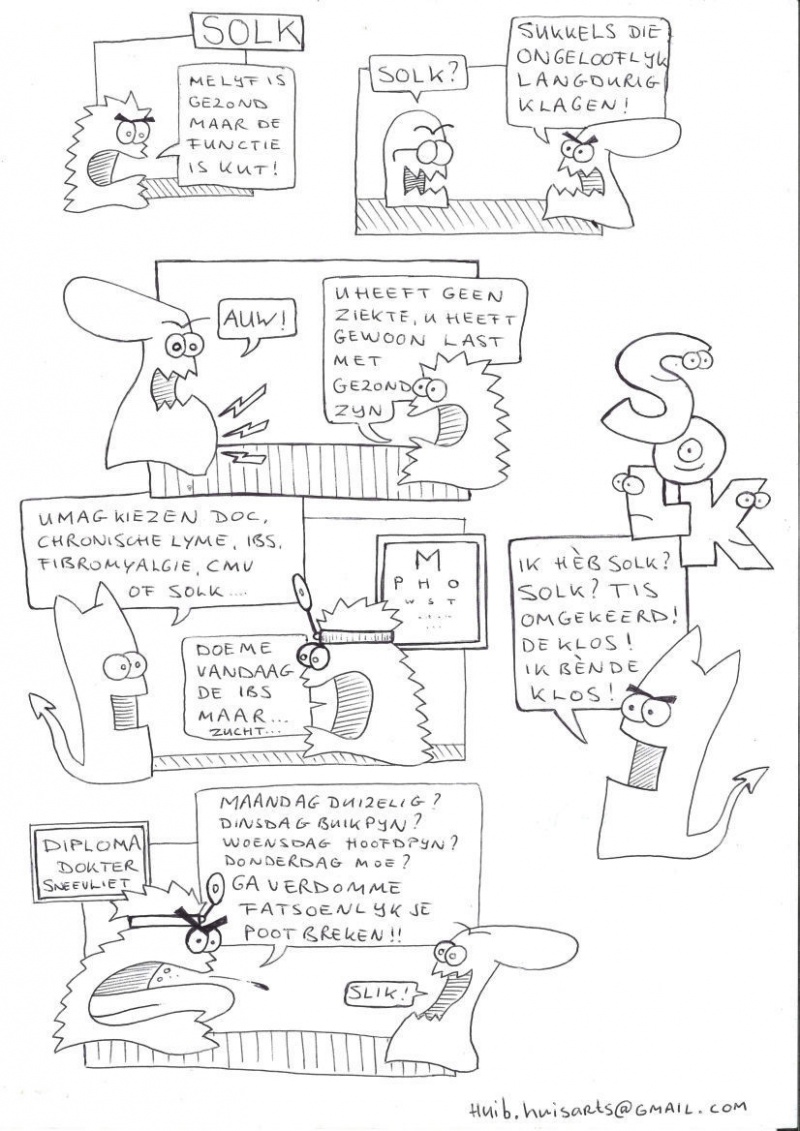 SOLK
ME LYF IS
GEZOND
MAAR DE
FUNCTIE
IS KUT!
SOLK?
SUKKELS DIE
ONGELOOFLYK
LANGDURIG
KLAGEN!
AUW!
U HEEFT GEEN
ZIEKTE, U HEEFT
GEWOON LAST
MET
GEZOND
ZYN
SOLK
U MAG KIEZEN DOC,
CHRONISCHE LYME, IBS,
FIBROMYALGIE, CMV
OF SOLK....
M
PHO
WST
DOE ME
VANDAAG
DE IBS
MAAR...
ZUCHT....
IK HÈB SOLK?
SOLK? TIS
OMGEKEERD!
DE KLOS!
IK BÈN DE
KLOS!
DIPLOMA
DOKTER
SNEEVLIET
MAANDAG DUIZELIG?
DINSDAG BUIKPYN?
WOENSDAG HOOFDPYN?
DONDERDAG MOE?
GA VERDOMME
FATSOENLYK JE
POOT BREKEN!!
SLIK!
Huib.huisarts@GMAIL.COM